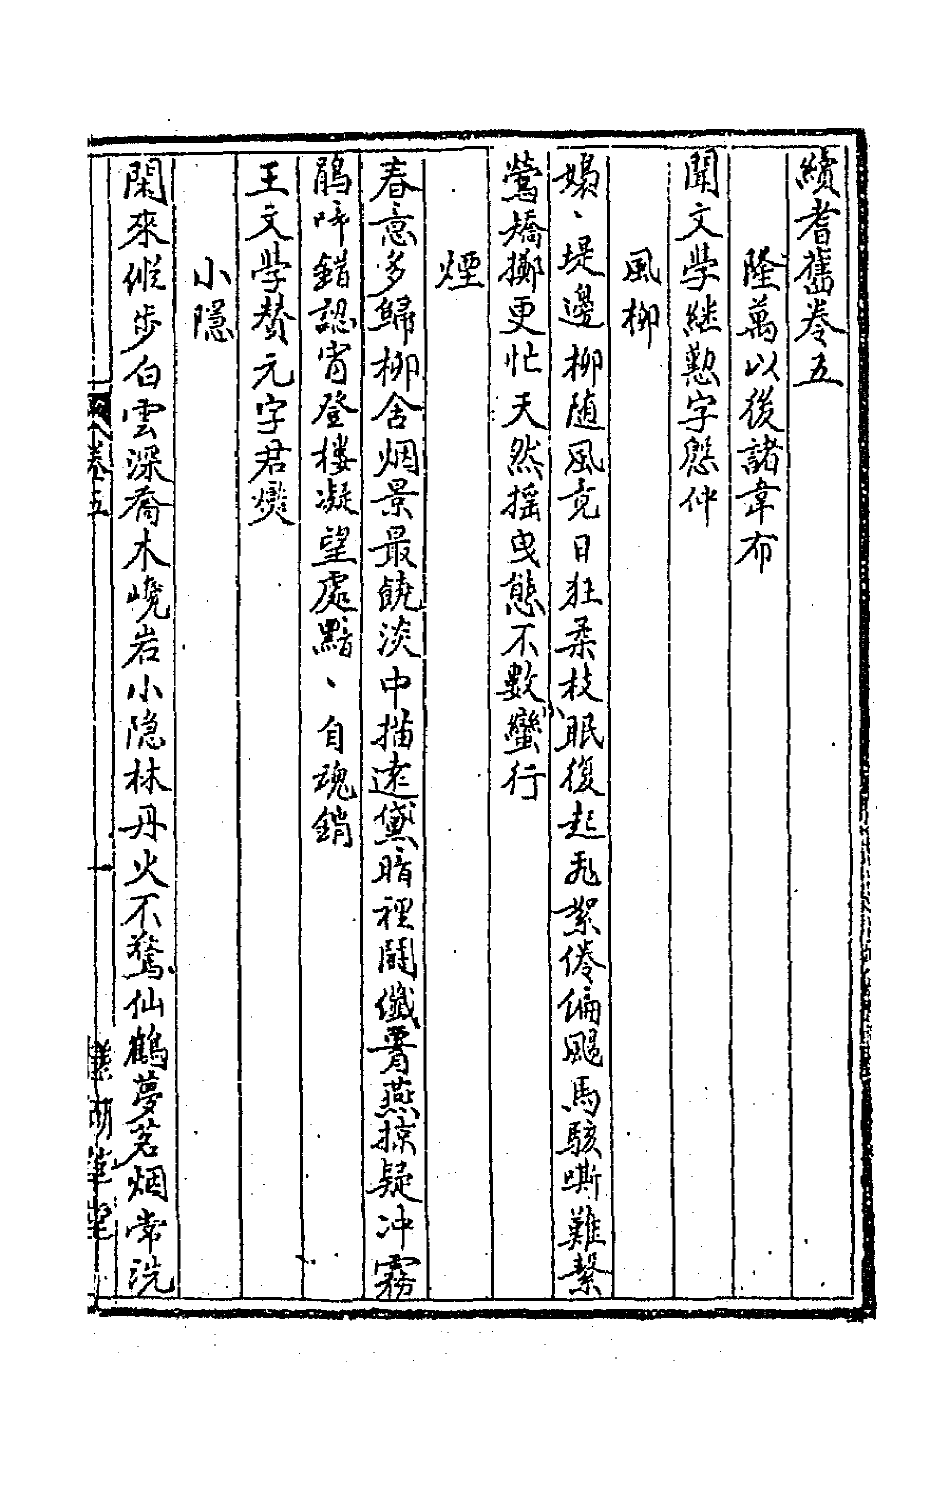 續耆舊卷五
隆萬以後諸韋布
聞文學継懃字慇仲
風柳
嫋、堤邊柳随風竟日狂柔枝眠復起飛絮倦偏颺馬駭嘶難繫
鶯矯擲更忙天然摇曳態不數小蠻行
煙
春意多歸柳舍烟景最饒淡中描遠黛暗裡鬪纖霄燕掠疑冲霧
鵑啼錯認宵登樓凝望處黯、自魂銷
王文學贊元字君爕
小隱
閑來緩步白雲深喬木巉岩小隐林丹火不驚仙鶴夢茗烟常洗
卷五
一
樵湖草堂